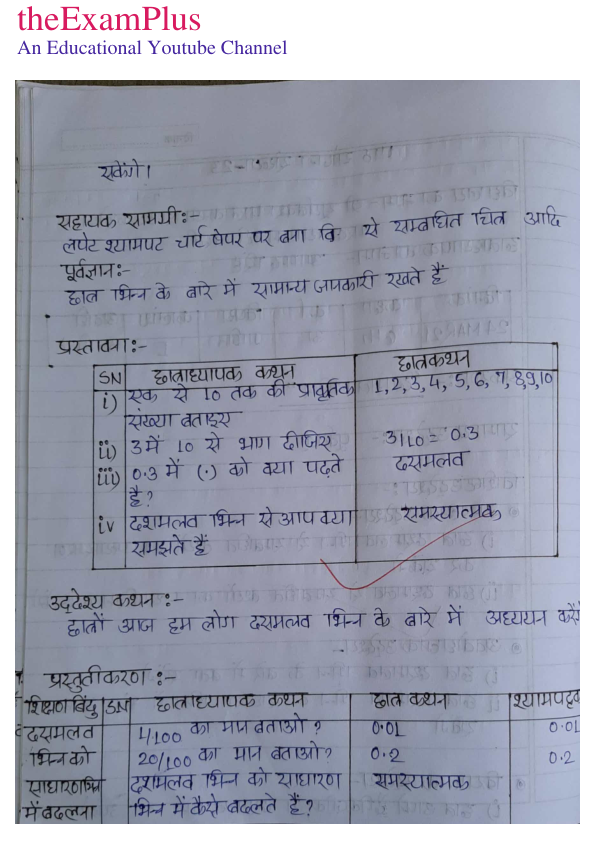 theExamPlus
An Educational Youtube Channel
सकेंगे।
सहायक सामग्री:-
लपेट श्यामपट चार्ट पेपर पर बना से सम्बंधित चित्र आदि
पूर्वज्ञान:-
छात्र भिन्न के बारे में सामान्य जानकारी रखते हैं
प्रस्तावना:-
SN छात्राध्यापक कथन छात्रकथन
i) एक से 10 तक की प्राकृतिक 1,2,3,4, 5,6, 7,8,9,10
संख्या बताइए
ii) 3 में 10 से भाग दीजिए 3/10 = 0.3
iii) 0.3 में (.) को क्या पढ़ते दसमलव
है?
iv दशमलव भिन्न से आप क्या समस्यात्मक
समझते हैं
उद्देश्य कथन:-
छात्रों आज हम लोग दसमलव भिन्न के बारे में अध्ययन करेंगे
प्रस्तुतीकरण:-
शिक्षण बिंदु SN छात्राध्यापक कथन छात्र कथन श्यामपट्ट
दसमलव 1/100 का मान बताओ? 0.01 0.01
भिन्न को 20/100 का मान बताओ? 0.2 0.2
साधारण भिन्न दशमलव भिन्न को साधारण समस्यात्मक
में बदलना भिन्न में कैसे बदलते हैं?